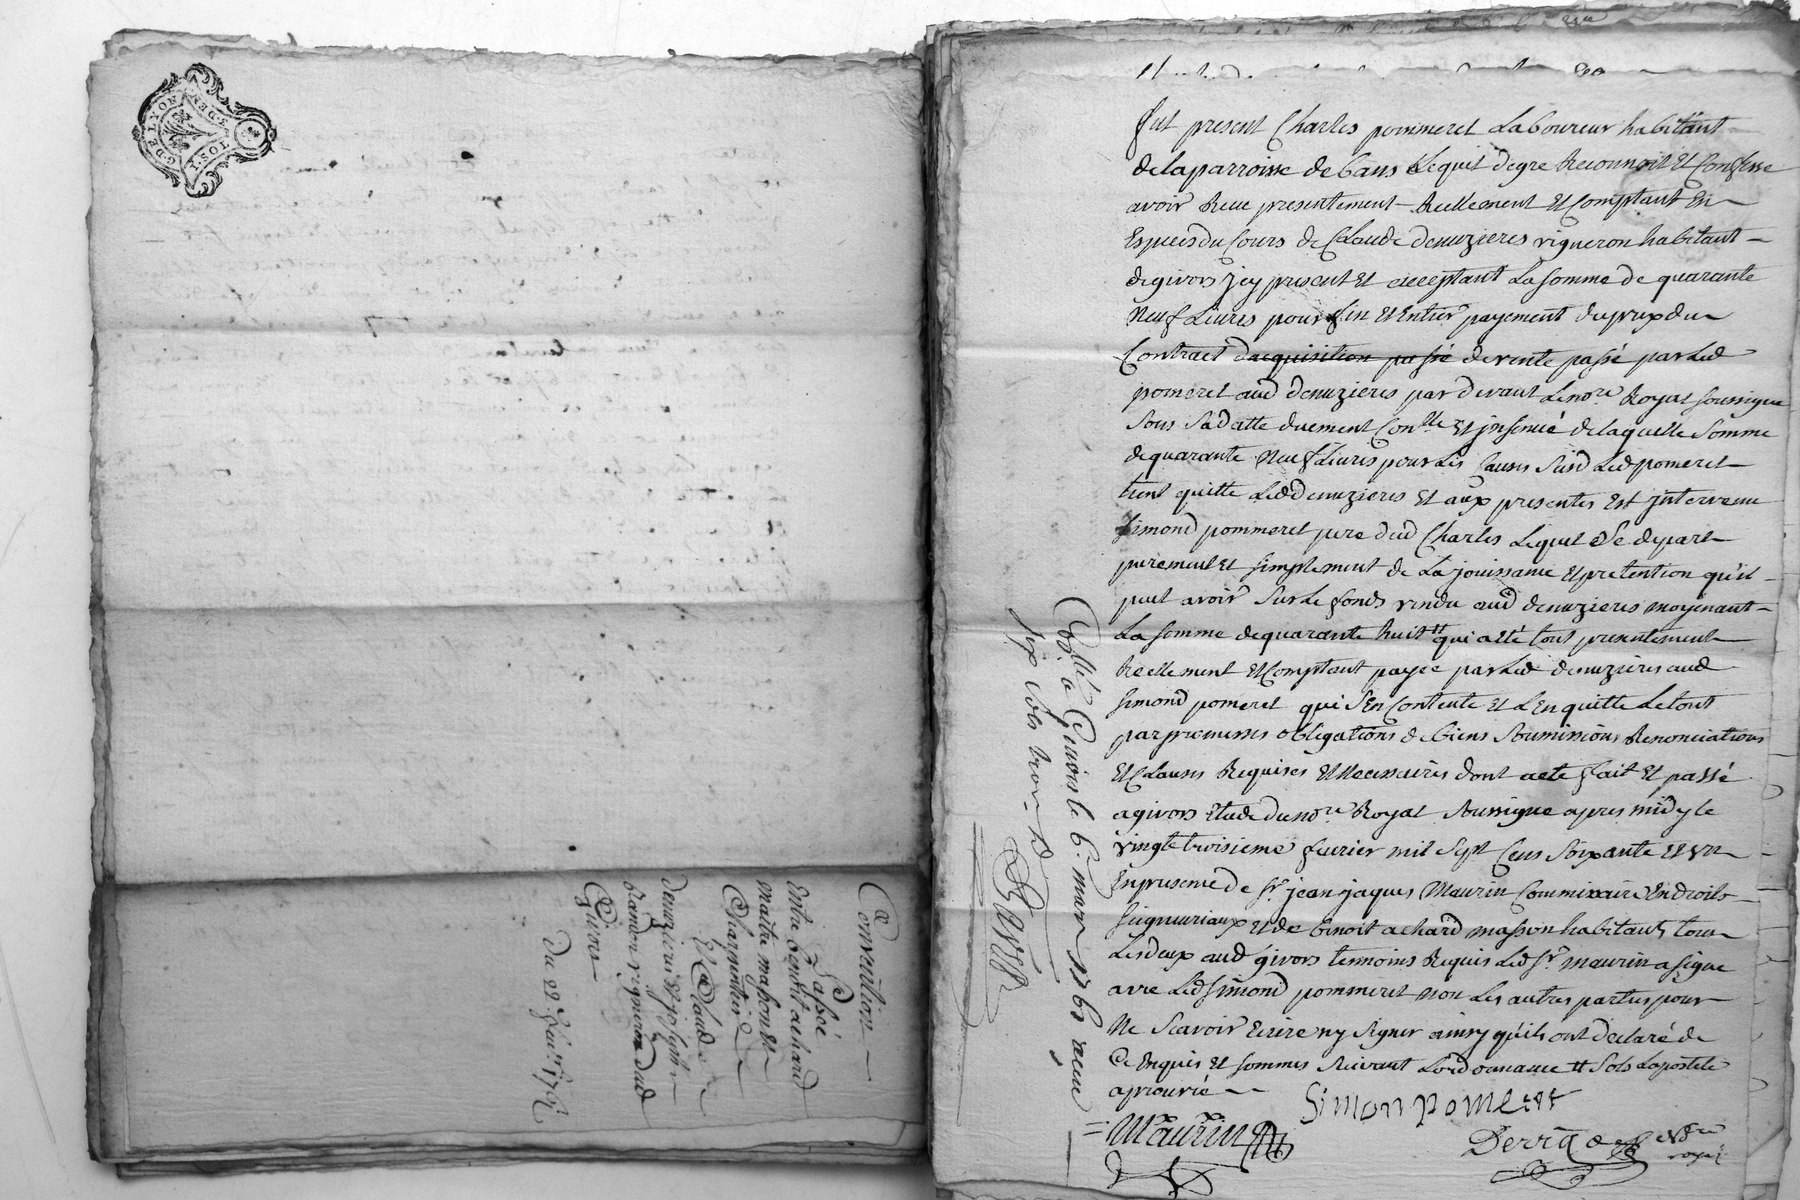 G. DE LYON
2. S. TOS.
D. DEN.
Convention
Passée
Entre benoit achard
maitre masson et
Charpentier
Et Claude
denuzieres et joseph
brandon vigneron dud
Givors
Du 22 fev.er 1761
fut present Charles pommeret Laboureur habitant
delaparroisse de bans Lequel degre Reconnoit Et Confesse
avoir Receu presentement Reellement Et Comptant En
Especes du Cours de Claude denuzieres vigneron habitant
degivors jcy present Et acceptant La somme de quarante
Neuf Livres pour fin Et Entier payement du prix du
Contract dacquisition passé de vente passé par Led
pomeret aud denuzieres par devant Le no.re Royal soussigne
sous sa datte duement Con.lle Et jnsinué de laquelle somme
de quarante Neuf Livres pour Les Causes susd Led pomeret
tient quitte Led denuzieres Et aux presentes Est jntervenu
simond pommeret pere dud Charles Lequel Se depart
purement Et simplement de La jouissance Et pretention qu'il
peut avoir sur Le fonds vendu aud denuzieres moyenant
La somme de quarante huit tt qui a eté tout presentement
Reellement Et Comptant payee par Led denuzieres aud
simond pomeret qui s'En Contente Et L'En quitte Le tout
par promesses obligations de biens soumissions Renonciations
Et Clauses Requises Et Necessaires dont acte fait Et passé
a givors Etude du no.re Royal soussigne apres midy le
vingt troisieme fevrier mil sept Cens soixante Et un
En presence de s.r jean jaques Maurin Commissaire En droits
seigneuriaux Et de benoit achard masson habitants tous
Les deux aud givors temoins Requis Led s.r maurin a signe
avec Led simond pommeret non Les autres parties pour
Ne scavoir Ecrire ny signer ainsy qu'ils ont declaré de
Ce Enquis Et sommes suivant L'ordonnance tt sols L'apostele
aprouvé
Simon pomeret
Maurin
Con.llé a Givors le 6. mars 1761 receu
six sols